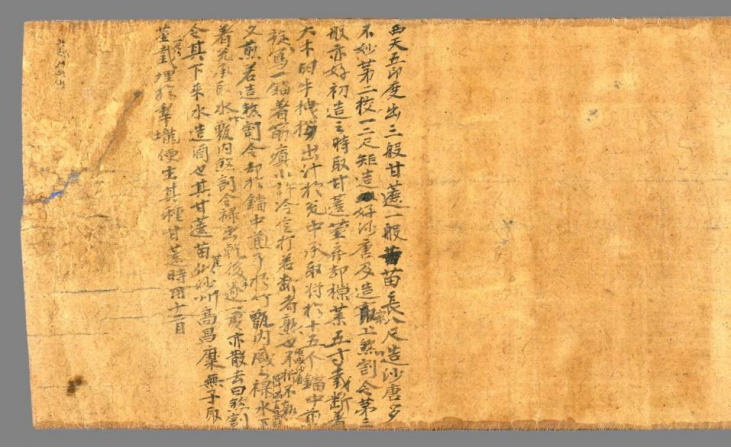 西天五印度出三般甘蔗一般苗長八尺造沙唐多
不妙第二挍一二尺矩造好沙唐及造最上煞割令第三
般亦好初造之時取甘蔗莖弃却梢葉五寸截斷著
大木臼牛拽拶出汁於瓮中承取將於十五个鐺中煎
旋寫一鐺著筯置小許冷定打若斷者熟也不折不熟
又煎若造煞割令却於鐺中煎了於竹甑內盛之祿水下
著瓮承取水甑內煞割令祿出乾後遂一處亦散去曰煞割
令其下來水造酒也其甘蔗苗似沙州高昌糜無子取
莖截埋於犁壠便生其種甘蔗時用十二月